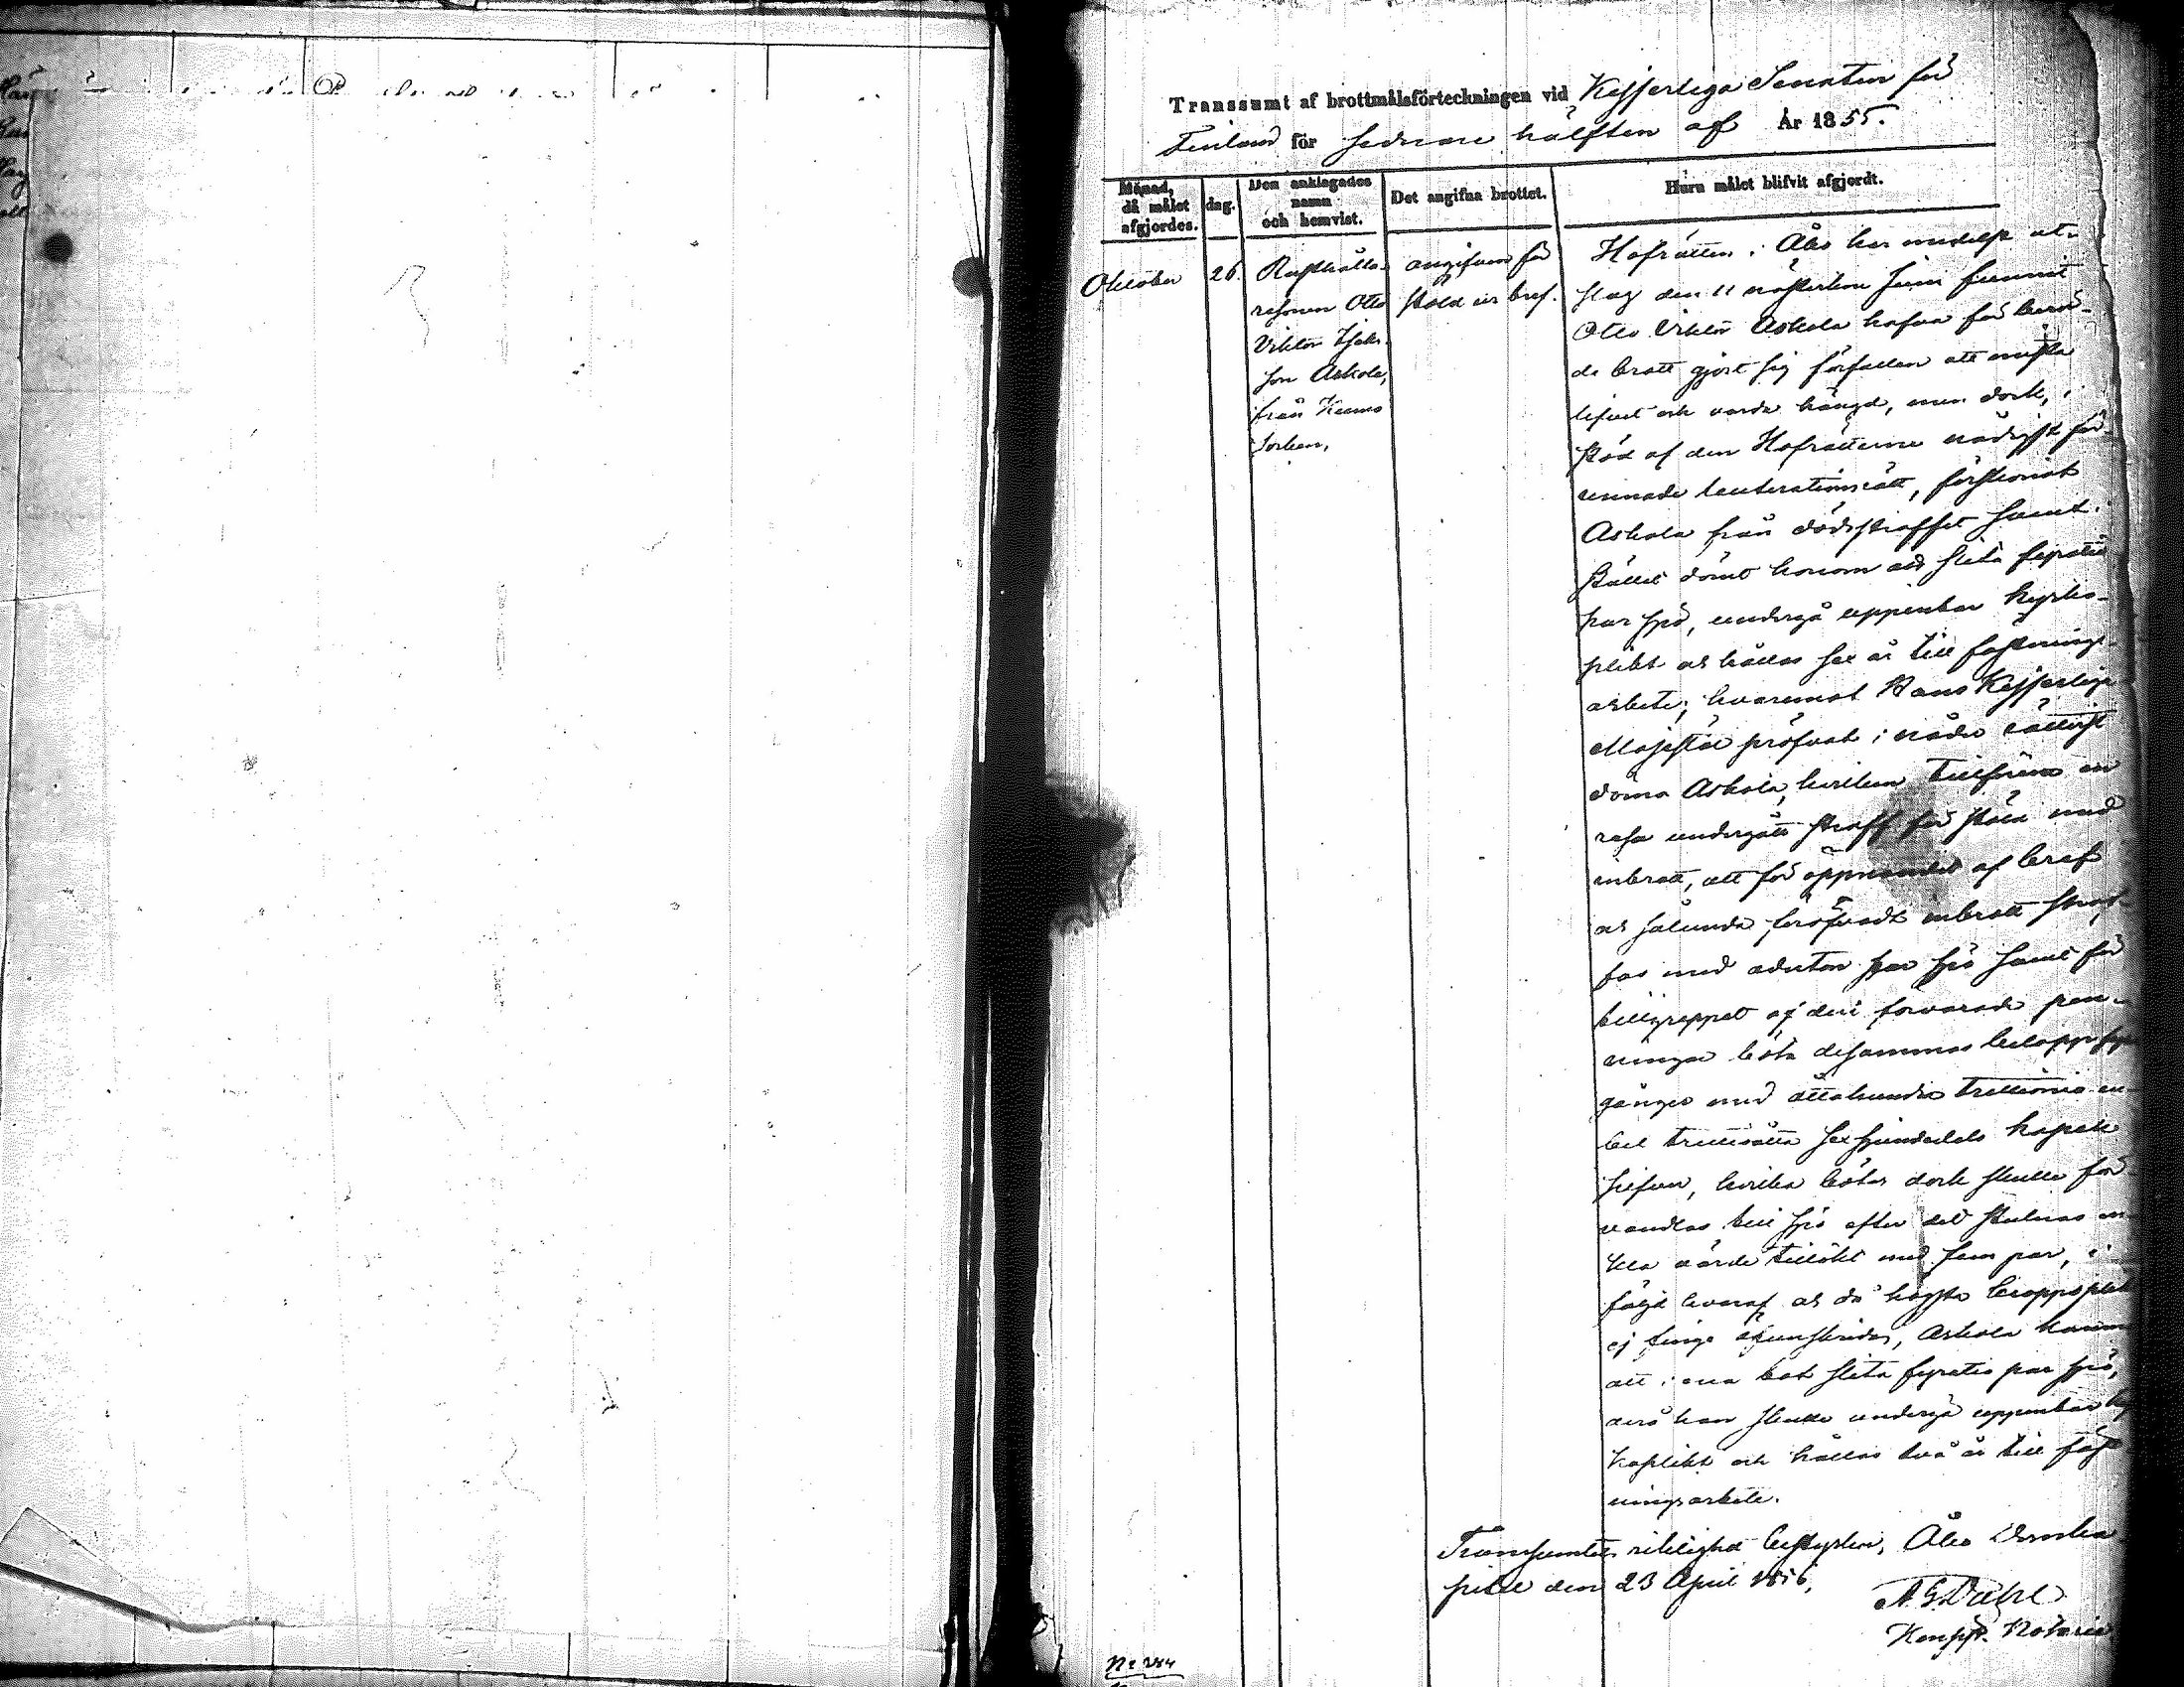 Transsumt af brottmålsförteckningen vid Kejserliga Senaten för
Finland för sednare hälften af År 1855.
Månad, då målet afgjordes.
dag.
Den anklagades namn och hemvist.
Det angifna brottet.
Huru målet blifvit afgjordt.
Oktober
26.
Rusthålla-
resonen Otto
Viktor Isaks-
son Askola,
från Kumo
Socken,
angifven för
stöld ur bref.
Hofrätten i Åbo har medelst ut-
slag den 11 nästvikne Juni funnit
Otto Viktor Askola hafva för berör-
de brott gjort sig förfallen att mista
lifvet och varda hängd, men dock, i
stöd af den Hofrätterne nådigst för-
unnade leuterationsrätt, förskonat
Askola från dödsstraffet samt i
stället dömt honom att slita fyratio
par spö, undergå uppenbar kyrko-
plikt och hållas sex år till fästnings-
arbete; hvaremot Hans Kejserliga
Majestät pröfvat i nåder rättvist
döma Askola, hvilken tillförene en
resa undergått straff för stöld med
inbrott, att för öppnandet af bref
och sålunda föröfvadt inbrott straf-
fas med aderton par spö samt för
tillgreppet af deri förvarade pen-
ningar böta desammas belopp
gånger med åttahundra trettionio ru-
bel trettioåtta sex sjundedels kopek
silfver, hvilka böter dock skulle för-
vandlas till spö efter det stulnas en-
kla värde tillökt med fem par, i
följd hvaraf och då högsta kroppsplikt
ej finge öfverskridas, Askola komme
att i ena bot slita fyratio par spö,
derå han skulle undergå uppenbar kyr-
koplikt och hållas två år till fäst-
ningsarbete.
Transsumtets riktighet bestyrker, Åbo Domka-
pitel den 23 April 1856,
Nr 284